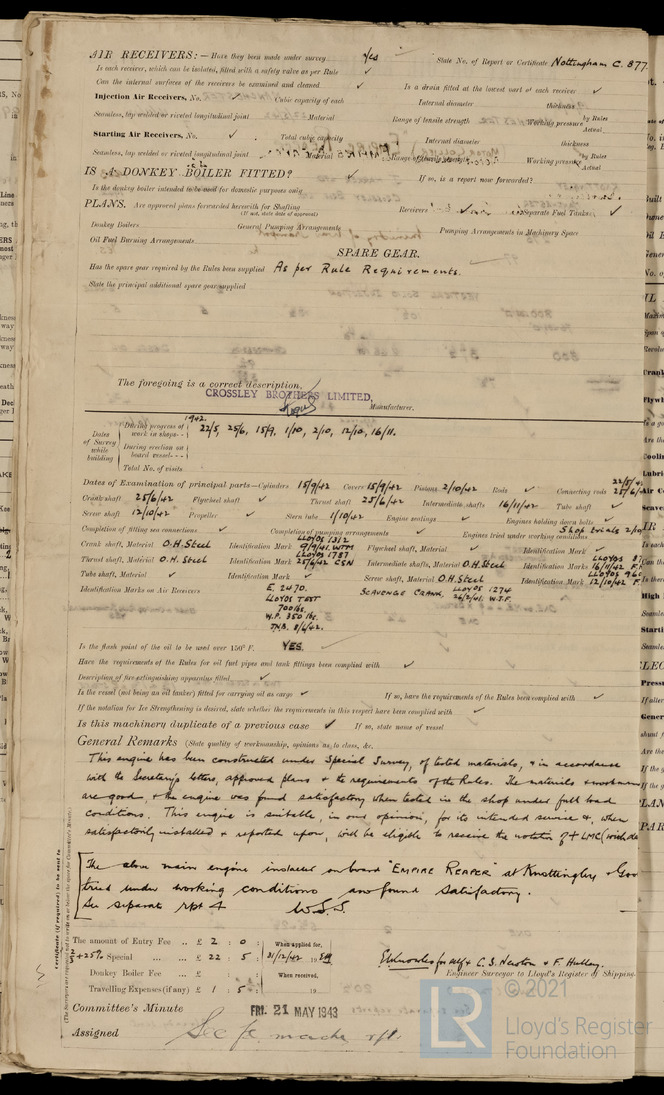 AIR RECEIVERS:— Have they been made under survey Yes State No. of Report or Certificate Nottingham C. 877
Is each receiver, which can be isolated, fitted with a safety valve as per Rule ✓
Can the internal surfaces of the receivers be examined and cleaned ✓ Is a drain fitted at the lowest part of each receiver ✓
Injection Air Receivers, No. ✓ Cubic capacity of each Internal diameter thickness
Seamless, lap welded or riveted longitudinal joint Material Range of tensile strength Working pressure by Rules Actual
Starting Air Receivers, No. ✓ Total cubic capacity Internal diameter thickness
Seamless, lap welded or riveted longitudinal joint Material Range of tensile strength Working pressure by Rules Actual
IS A DONKEY BOILER FITTED? ✓ If so, is a report now forwarded?
Is the donkey boiler intended to be used for domestic purposes only
PLANS. Are approved plans forwarded herewith for Shafting Receivers ✓ Separate Fuel Tanks ✓
(If not, state date of approval)
Donkey Boilers General Pumping Arrangements Pumping Arrangements in Machinery Space
Oil Fuel Burning Arrangements
SPARE GEAR.
Has the spare gear required by the Rules been supplied As per Rule Requirements.
State the principal additional spare gear supplied
The foregoing is a correct description,
CROSSLEY BROTHERS LIMITED,
Manufacturer.
1942.
Dates of Survey while building
During progress of work in shops - - 22/5, 25/6, 15/9, 1/10, 2/10, 12/10, 16/11.
During erection on board vessel - - -
Total No. of visits
Dates of Examination of principal parts—Cylinders 15/9/42 Covers 15/9/42 Pistons 2/10/42 Rods ✓ Connecting rods 22/5/42 25/6/42
Crank shaft 25/6/42 Flywheel shaft ✓ Thrust shaft 25/6/42 Intermediate shafts 16/11/42 Tube shaft ✓
Screw shaft 12/10/42 Propeller ✓ Stern tube 1/10/42 Engine seatings ✓ Engines holding down bolts ✓
Completion of fitting sea connections ✓ Completion of pumping arrangements ✓ Engines tried under working conditions Shop trials 2/10
Crank shaft, Material O.H. Steel Identification Mark LLOYDS 1312 9/9/41. WTM Flywheel shaft, Material ✓ Identification Mark ✓
Thrust shaft, Material O.H. Steel Identification Mark LLOYDS 1787 25/6/42 CSN Intermediate shafts, Material O.H. Steel Identification Mark LLOYDS 16/11/42 F.
Tube shaft, Material ✓ Identification Mark ✓ Screw shaft, Material O.H. Steel Identification Mark LLOYDS 12/10/42 F.
Identification Marks on Air Receivers E. 2470. SCAVENGE CRANK, LLOYDS 1274
LLOYDS TEST
700 lbs.
W.P. 350 lbs.
Is the flash point of the oil to be used over 150° F. YES.
Have the requirements of the Rules for oil fuel pipes and tank fittings been complied with ✓
Description of fire extinguishing apparatus fitted ✓
Is the vessel (not being an oil tanker) fitted for carrying oil as cargo ✓ If so, have the requirements of the Rules been complied with ✓
If the notation for Ice Strengthening is desired, state whether the requirements in this respect have been complied with ✓
Is this machinery duplicate of a previous case ✓ If so, state name of vessel
General Remarks (State quality of workmanship, opinions as to class, &c.
This engine has been constructed under Special Survey, of tested materials, & in accordance
with the Secretary's letters, approved plans & the requirements of the Rules. The materials & workman
are good, & the engine was found satisfactory when tested in the shop under full load
conditions. This engine is suitable, in our opinion, for its intended service &, when
satisfactorily installed & reported upon, will be eligible to receive the notation of + LMC (with date
The above main engine installed on board "EMPIRE REAPER" at Knottingley &
tried under working conditions and found satisfactory.
See separate rpt 4 W.S.S.
The amount of Entry Fee .. £ 2 : 0 : When applied for,
Special ... ... £ 22 : 5 : 31/12/42
Donkey Boiler Fee ... £ : : When received,
Travelling Expenses (if any) £ 1 : 5 : 19
for self & C. S. Newton & F. Hulley.
Engineer Surveyor to Lloyd's Register of Shipping.
Committee's Minute FRI. 21 MAY 1943
Assigned See fe mach rpt.
© 2021
LR Lloyd's Register
Foundation